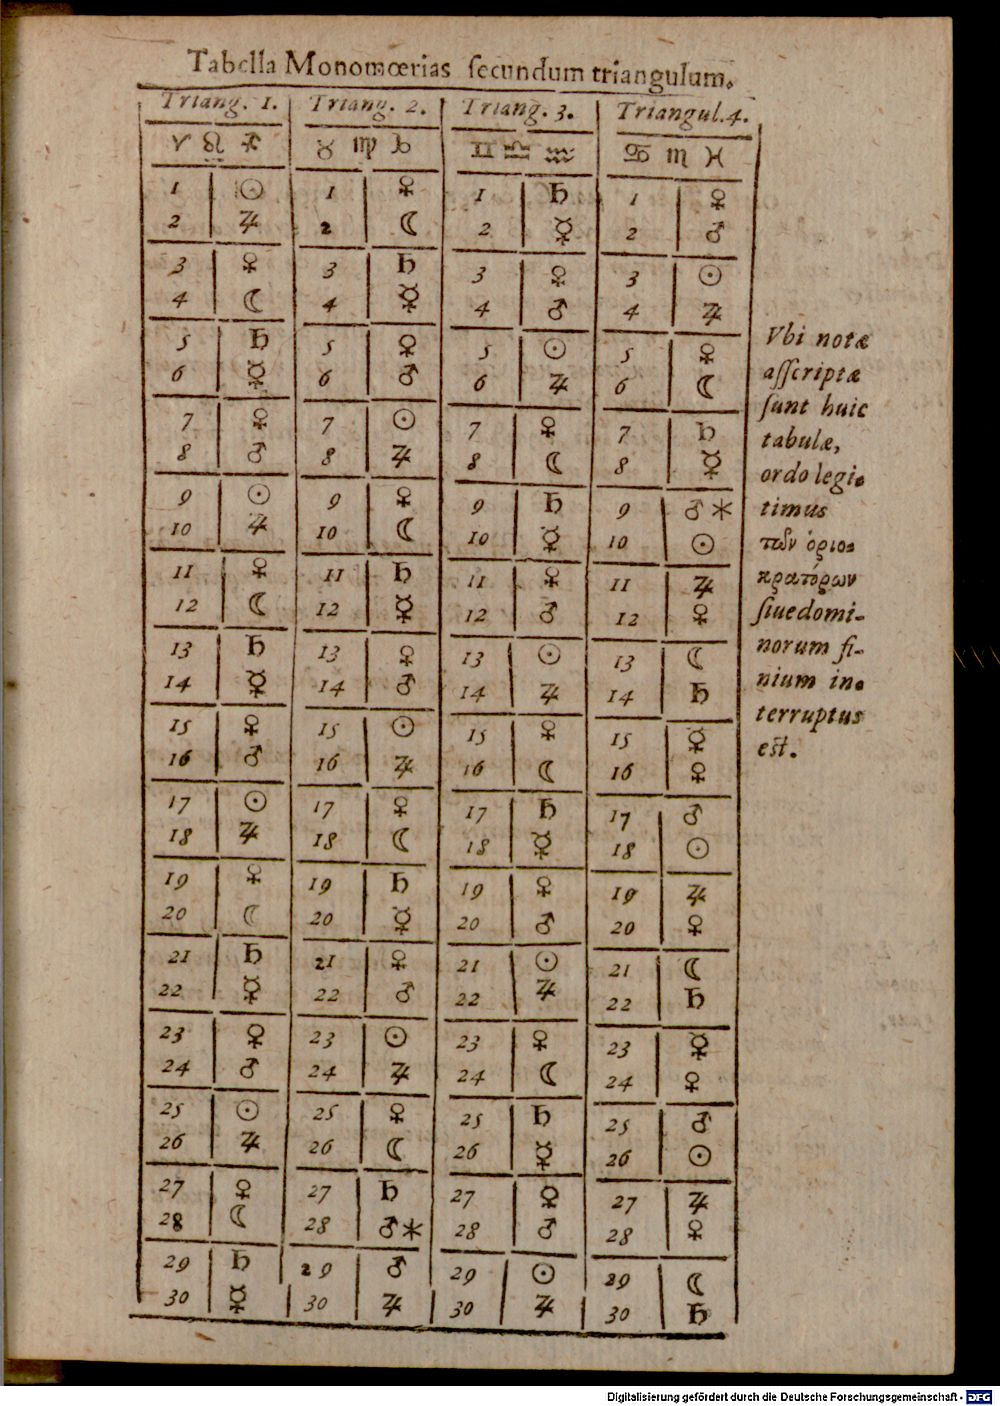 Tabella Monomœrias ſecundum triangulum.
Triang. 1. Triang. 2. Triang. 3. Triangul. 4.
♈ ♌ ♐ ♉ ♍ ♑ ♊ ♎ ♒ ♋ ♏ ♓
1 ☉ 1 ♀ 1 ♄ 1 ♀
2 ♃ 2 ☾ 2 ☿ 2 ♂
3 ♀ 3 ♄ 3 ♀ 3 ☉
4 ☾ 4 ☿ 4 ♂ 4 ♃
5 ♄ 5 ♀ 5 ☉ 5 ♀
6 ☿ 6 ♂ 6 ♃ 6 ☾
7 ♀ 7 ☉ 7 ♀ 7 ♄
8 ♂ 8 ♃ 8 ☾ 8 ☿
9 ☉ 9 ♀ 9 ♄ 9 ♂*
10 ♃ 10 ☾ 10 ☿ 10 ☉
11 ♀ 11 ♄ 11 ♀ 11 ♃
12 ☾ 12 ☿ 12 ♂ 12 ♀
13 ♄ 13 ♀ 13 ☉ 13 ☾
14 ☿ 14 ♂ 14 ♃ 14 ♄
15 ♀ 15 ☉ 15 ♀ 15 ☿
16 ♂ 16 ♃ 16 ☾ 16 ♀
17 ☉ 17 ♀ 17 ♄ 17 ♂
18 ♃ 18 ☾ 18 ☿ 18 ☉
19 ♀ 19 ♄ 19 ♀ 19 ♃
20 ☾ 20 ☿ 20 ♂ 20 ♀
21 ♄ 21 ♀ 21 ☉ 21 ☾
22 ☿ 22 ♂ 22 ♃ 22 ♄
23 ♀ 23 ☉ 23 ♀ 23 ☿
24 ♂ 24 ♃ 24 ☾ 24 ♀
25 ☉ 25 ♀ 25 ♄ 25 ♂
26 ♃ 26 ☾ 26 ☿ 26 ☉
27 ♀ 27 ♄ 27 ♀ 27 ♃
28 ☾ 28 ♂* 28 ♂ 28 ♀
29 ♄ 29 ♂ 29 ☉ 29 ☾
30 ☿ 30 ♃ 30 ♃ 30 ♄
Vbi notæ
aſſcriptæ
ſunt huic
tabulæ,
ordo legi-
timus
τῶν ὁριο-
κρατόρων
ſiue domi-
norum fi-
nium in-
terruptus
eſt.
Digitalisierung gefördert durch die Deutsche Forschungsgemeinschaft - DFG